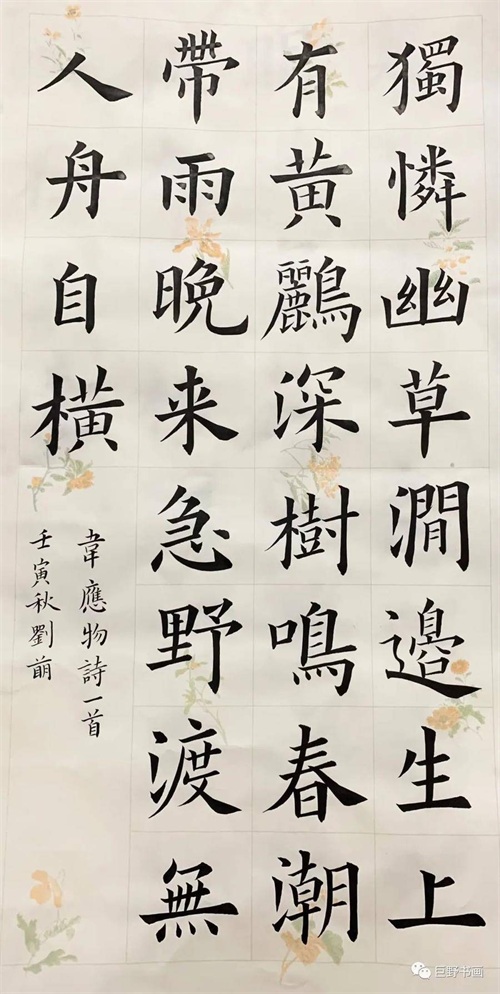 獨憐幽草澗邉生上
有黃鸝深樹鳴春潮
帶雨晚来急野渡無
人舟自橫
韋應物詩一首
壬寅秋劉萠
巨野书画